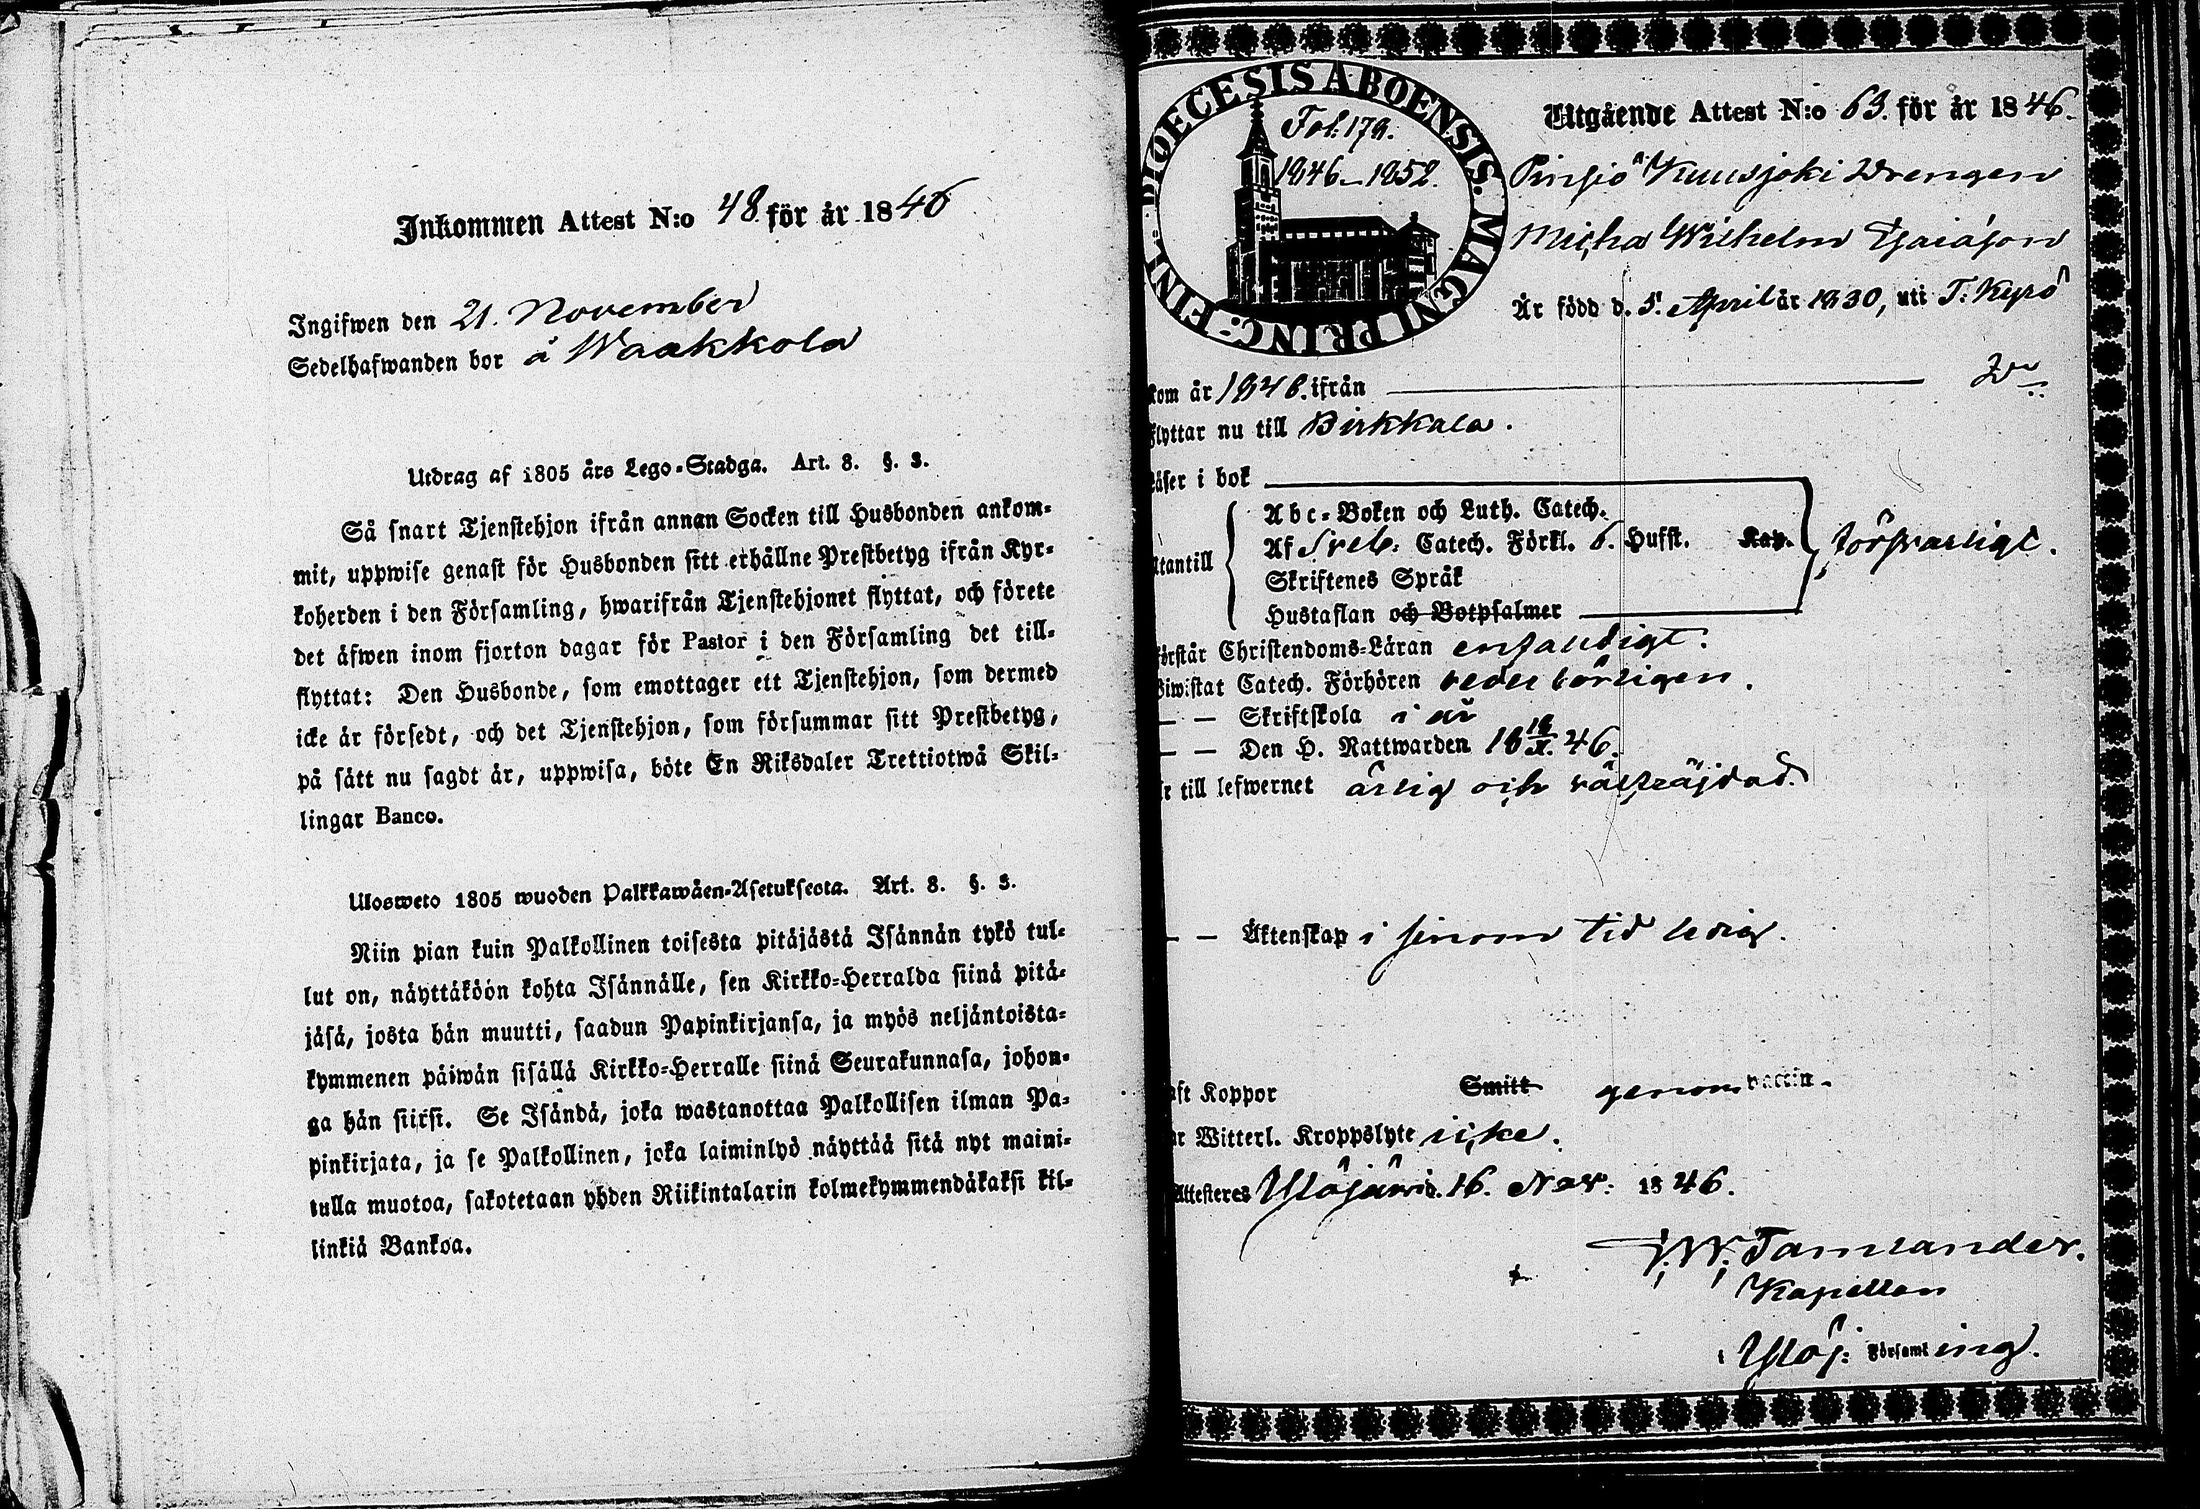 Inkommen Attest N:o 48 för år 1846
Ingifwen den 21. November
Sedelhafwanden bor å Waakkola
Utdrag af 1805 års Lego-Stadga. Art. 8. §. 3.
Så snart Tjenstehjon ifrån annan Socken till Husbonden ankom-
mit, uppwise genast för Husbonden sitt erhållne Prestbetyg ifrån Kyr-
koherden i den Församling, hwarifrån Tjenstehjonet flyttat, och förete
det äfwen inom fjorton dagar för Pastor i den Församling det till-
flyttat: Den Husbonde, som emottager ett Tjenstehjon, som dermed
icke är försedt, och det Tjenstehjon, som försummar sitt Prestbetyg,
på sätt nu sagdt är, uppwisa, böte En Riksdaler Trettiotwå Skil-
lingar Banco.
Ulosweto 1805 wuoden Palkkawäen-Asetuksesta. Art. 8. §. 3.
Niin pian kuin Palkollinen toisesta pitäjästä Isännän tykö tul-
lut on, näyttäköön kohta Isännälle, sen Kirkko-Herralda siinä pitä-
jäsä, josta hän muutti, saadun Papinkirjansa, ja myös neljäntoista-
kymmenen päiwän sisällä Kirkko-Herralle siinä Seurakunnasa, johon-
ga hän siirsi. Se Isändä, joka wastanottaa Palkollisen ilman Pa-
pinkirjata, ja se Palkollinen, joka laiminlyö näyttää sitä nyt maini-
tulla muotoa, sakotetaan yhden Riikintalarin kolmekymmendäkaksi kil-
linkiä Bankoa.
DIOECESIS ABOENSIS. MAGNI PRINC: FINL:
Fol: 179.
1846–1852.
Utgående Attest N:o 63. för år 1846.
Pinsiö Kuusjoki Drengen
Micha Wilhelm Esaiasson
Är född d. 5. April år 1830, uti T: Kyrö
kom år 1846. ifrån D:o
flyttar nu till Birkkala.
Läser i bok
Utantill
Abc-Boken och Luth. Catech.
Af Sveb: Catech. Förkl. 6. Hufst. Kap.
Skriftenes Språk
Hustaflan och Botpsalmer
försvarligt.
förstår Christendoms-Läran enfaldigt.
Biwistat Catech. Förhören vederbörligen.
— — Skriftskola i år
— — Den H. Nattwarden 18 18/X. 46.
är till lefwernet ärlig och välfräjdad.
— — Äktenskap i sinom tid ledig.
haft Koppor Smitt genom vaccin.
har Witterl. Kroppslyte icke.
Attesteres Ylöjärvi d. 16. Nov. 1846.
J. W. Tamlander.
Kapellan
i Ylöj: Församling.